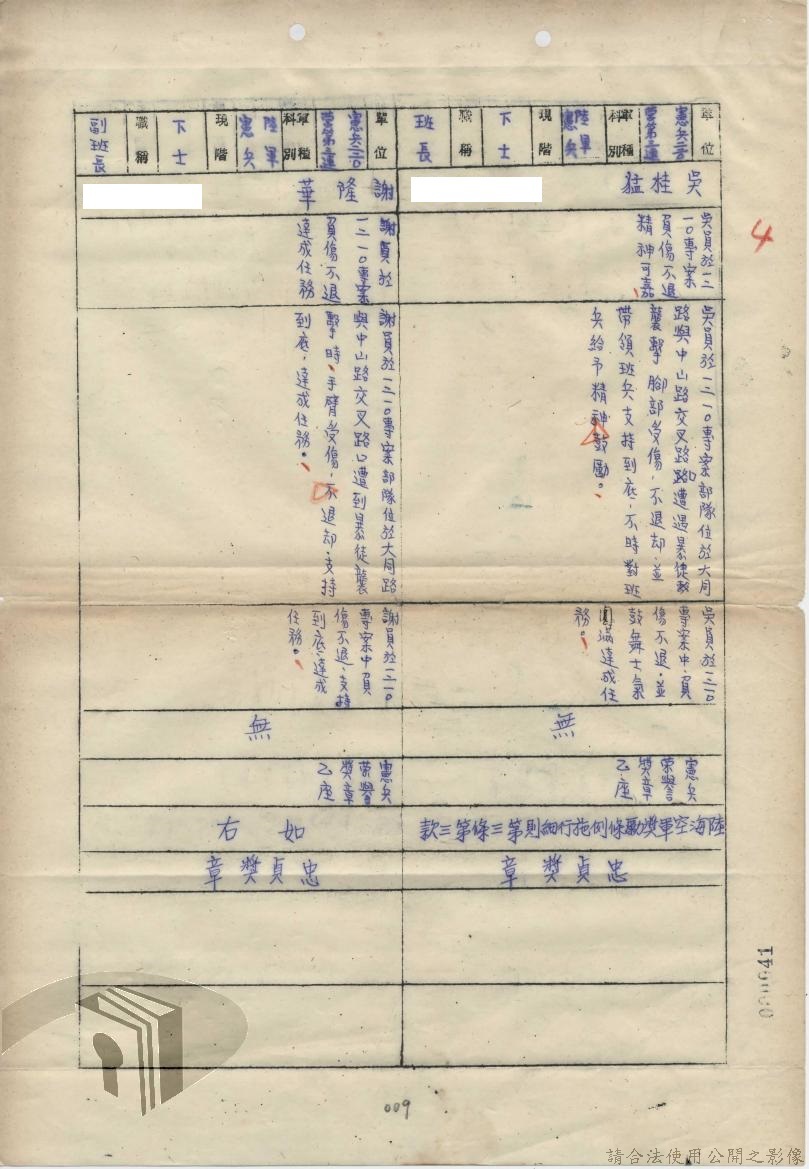 4
單位
憲兵二一〇
營第二連
軍種
科別
陸軍
憲兵
現階
下士
職稱
班長
吳桂猛
吳員於一二
一〇專案
負傷不退
精神可嘉
吳員於一二一〇專案部隊位於大同
路與中山路交叉路口遭遇暴徒
襲擊腳部受傷,不退却,並
帶領班兵支持到底,不時對班
兵給予精神鼓勵。
吳員於一二一〇
專案中,負
傷不退,並
鼓舞士氣
圓滿達成任
務。
無
憲兵
榮譽
獎章
乙座
陸海空軍獎勵條例施行細則第三條第三款
忠貞獎章
單位
憲兵二一〇
營第二連
軍種
科別
陸軍
憲兵
現階
下士
職稱
副班長
謝隆華
謝員於
一二一〇專案
負傷不退
達成任務
謝員於一二一〇專案部隊位於大同路
與中山路交叉路口遭到暴徒襲
擊時,手臂受傷,不退却,支持
到底,達成任務。
謝員於一二一〇
專案中負
傷不退,支持
到底,達成
任務。
無
憲兵
榮譽
獎章
乙座
如右
忠貞獎章
000041
009
請合法使用公開之影像